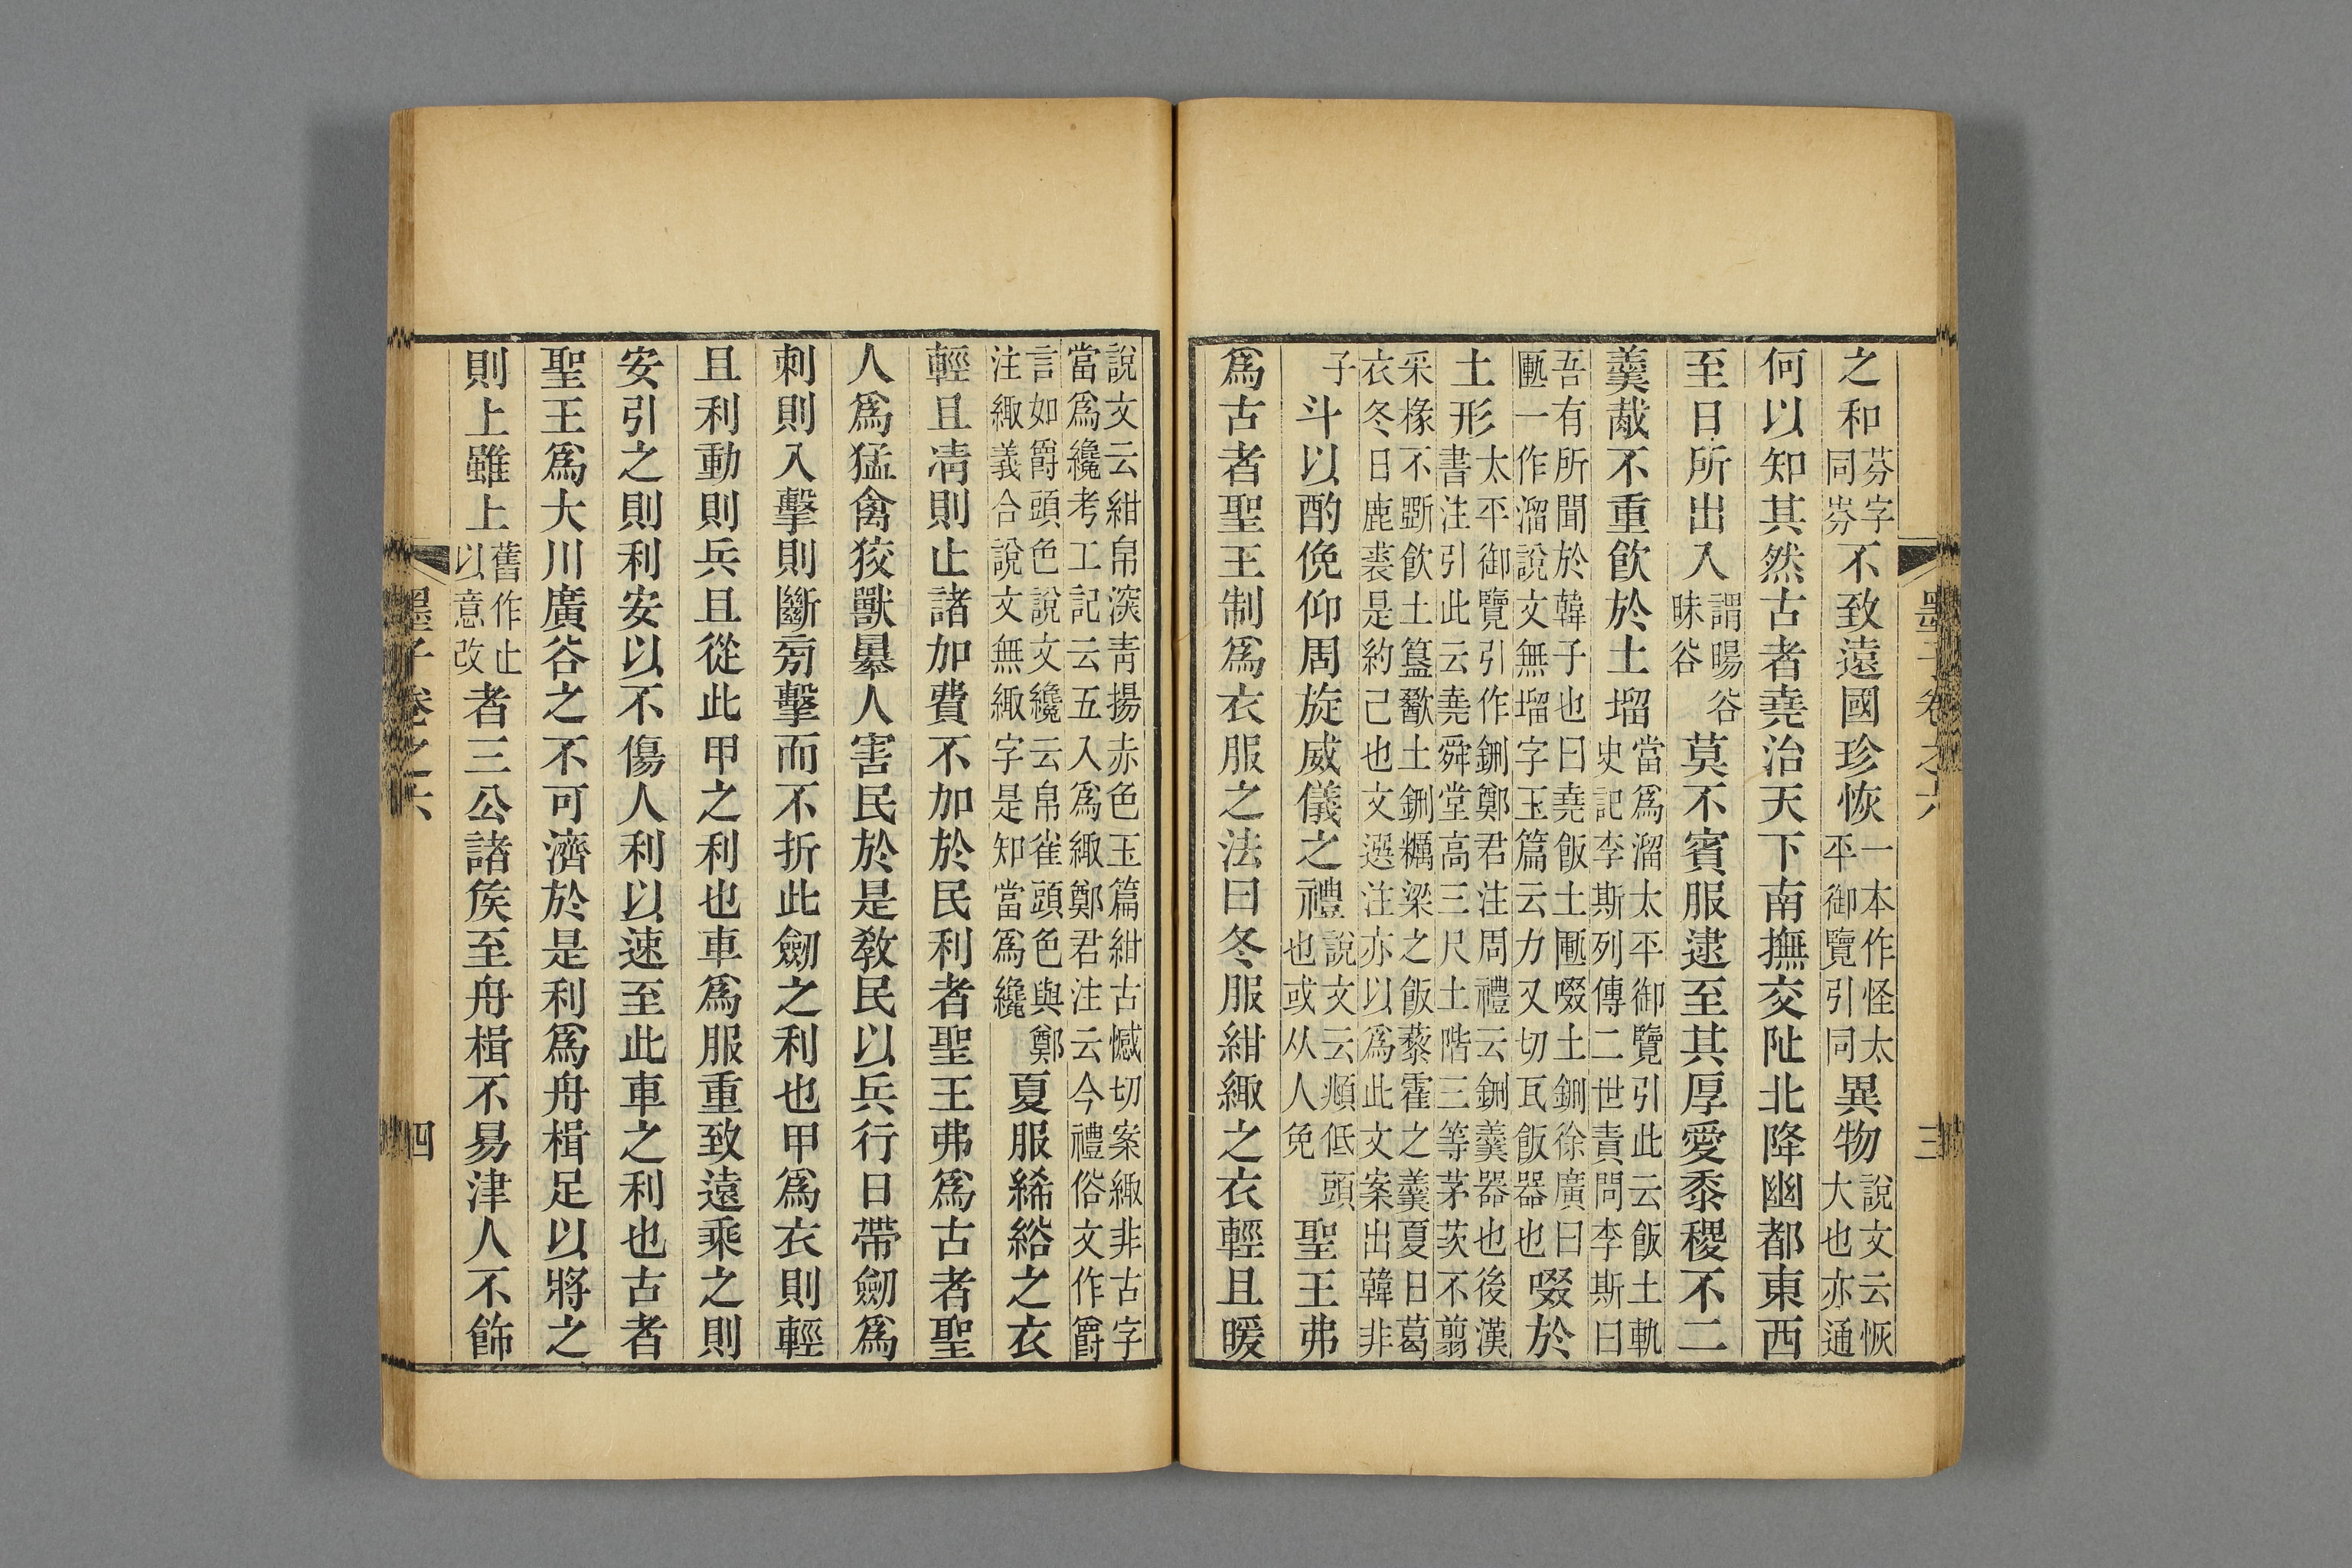 墨子卷之六 三
之和芬字同芬不致遠國珍恢一本作怪太平御覽引同異物說文云恢大也亦通
何以知其然古者堯治天下南撫交阯北降幽都東西
至日所出入謂暘谷昧谷莫不賓服逮至其厚愛黍稷不二
羹胾不重飲於土塯當爲溜太平御覽引此云飯土軌史記李斯列傳二世責問李斯曰
吾有所聞於韓子也曰堯飯土匭啜土鉶徐廣曰匭一作溜說文無塯字玉篇云力又切瓦飯器也啜於
土形太平御覽引作鉶鄭君注周禮云鉶羹器也後漢書注引此云堯舜堂高三尺土階三等茅茨不翦
采椽不斲飲土簋歠土鉶糲梁之飯藜霍之羹夏日葛衣冬日鹿裘是約己也文選注亦以爲此文案出韓非
子斗以酌俛仰周旋威儀之禮說文云頫低頭也或从人免聖王弗
爲古者聖王制爲衣服之法曰冬服紺緅之衣輕且暖
說文云紺帛深青揚赤色玉篇紺古憾切案緅非古字當爲纔考工記云五入爲緅鄭君注云今禮俗文作爵
言如爵頭色說文纔云帛雀頭色與鄭注緅義合說文無緅字是知當爲纔夏服絺綌之衣
輕且凊則止諸加費不加於民利者聖王弗爲古者聖
人爲猛禽狡獸暴人害民於是教民以兵行日帶劒爲
刺則入擊則斷旁擊而不折此劒之利也甲爲衣則輕
且利動則兵且從此甲之利也車爲服重致遠乘之則
安引之則利安以不傷人利以速至此車之利也古者
聖王爲大川廣谷之不可濟於是利爲舟楫足以將之
則上雖上舊作止以意改者三公諸矦至舟楫不易津人不飾
墨子卷之六 四